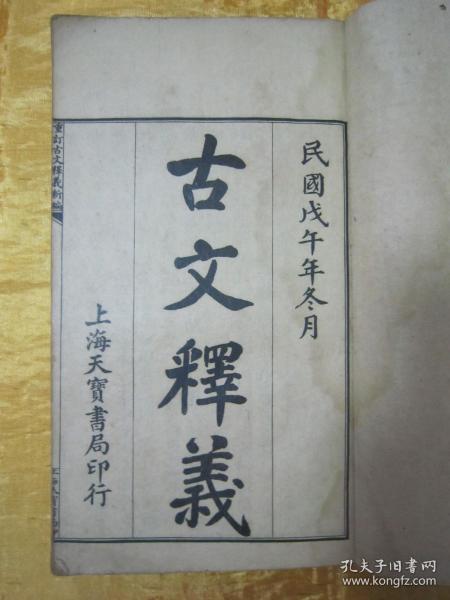 民國戊午年冬月
古文釋義
上海天寶書局印行
重訂古文釋義新編
孔夫子旧书网
www.kongfz.com